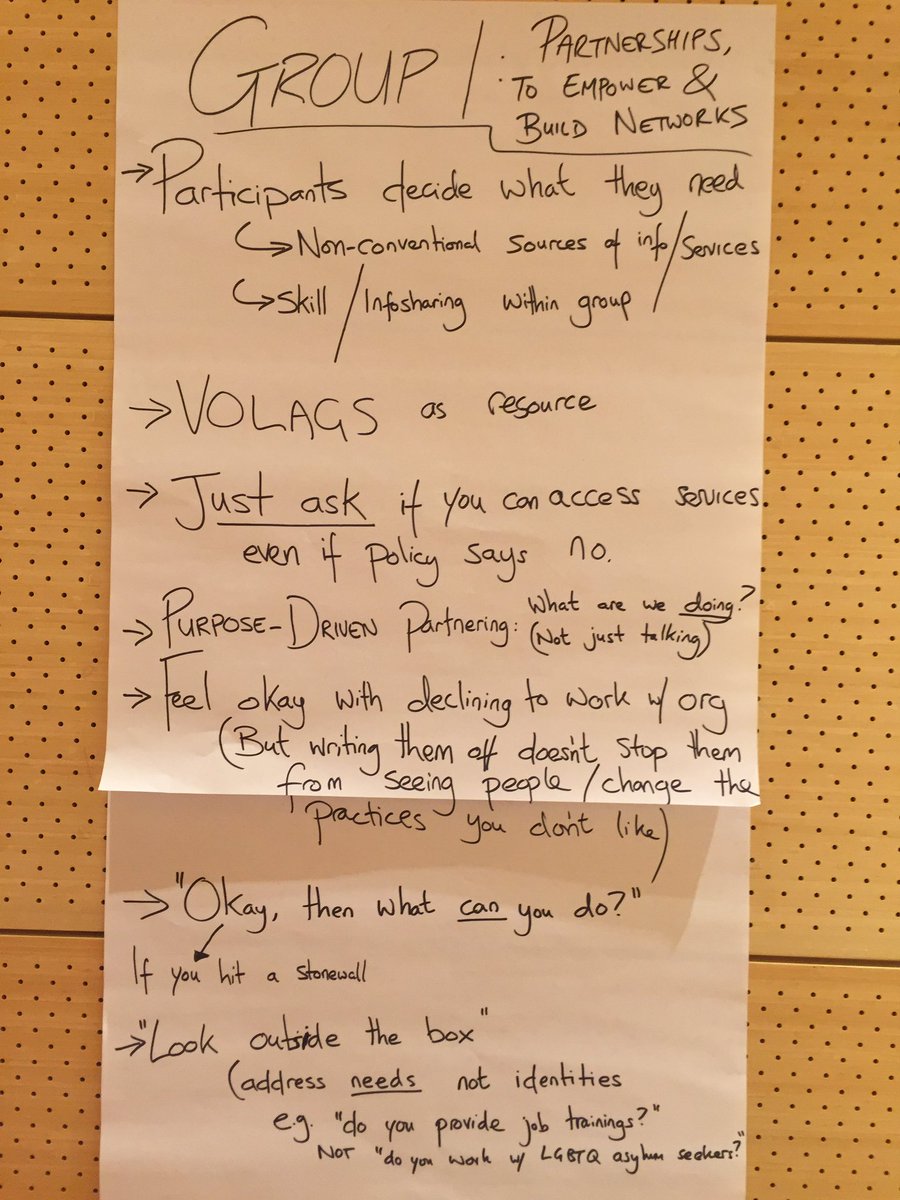 GROUP 1 : PARTNERSHIPS,
TO EMPOWER &
BUILD NETWORKS
→ Participants decide what they need
↳ Non-conventional sources of info/services
↳ Skill / Infosharing within group
→ VOLAGS as resource
→ Just ask if you can access services
even if policy says no.
→ PURPOSE-DRIVEN Partnering: What are we doing?
(Not just talking)
→ Feel okay with declining to work w/ org
(But writing them off doesn't stop them
from seeing people / change the
practices you don't like)
→ "Okay, then what can you do?"
If you hit a stonewall
→ "Look outside the box"
(address needs not identities
e.g. "do you provide job trainings?"
NOT "do you work w/ LGBTQ asylum seekers?"